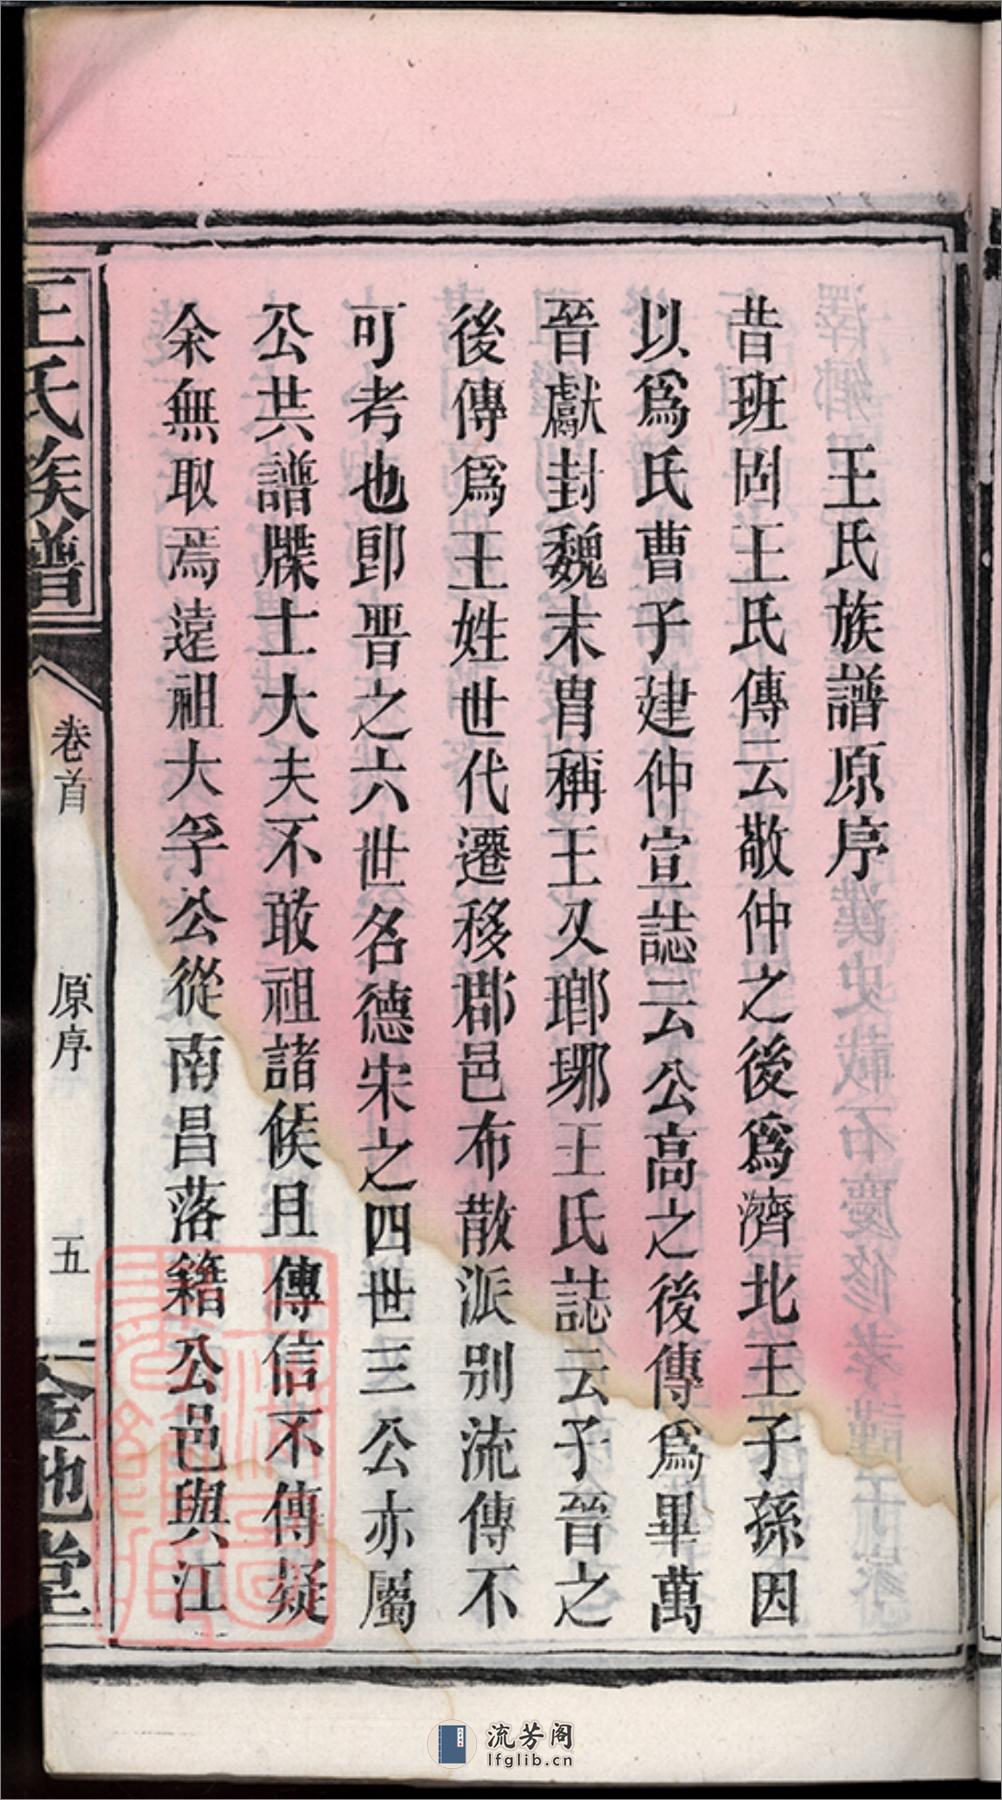 王氏族譜原序
昔班固王氏傳云敬仲之後爲濟北王子孫因
以爲氏曹子建仲宣誌云公高之後傳爲畢萬
晉獻封魏末胄稱王又瑯琊王氏誌云子晉之
後傳爲王姓世代遷移郡邑布散派别流傳不
可考也卽晋之六世名德宋之四世三公亦屬
公共譜牒士大夫不敢祖諸候且傳信不傳疑
余無取焉遠祖大孚公從南昌落籍公邑與江
王氏族譜
卷首
原序
五
金池堂
流芳阁
lfglib.cn